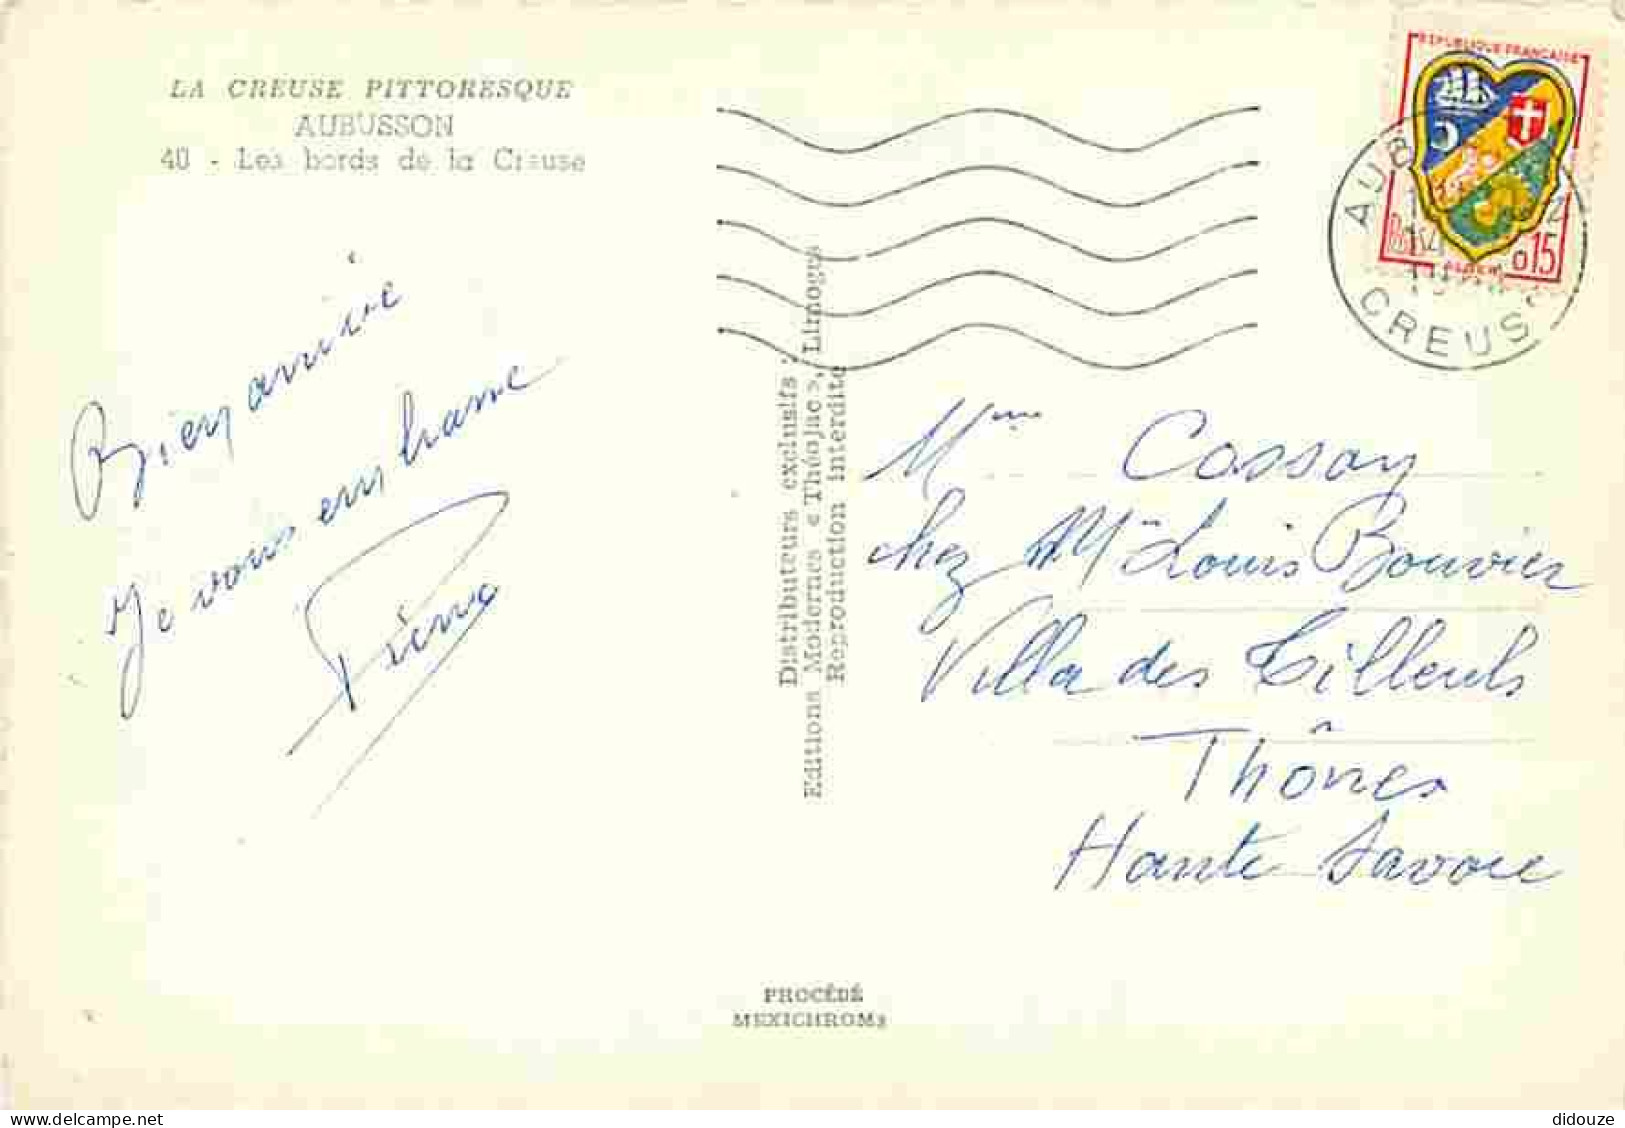 LA CREUSE PITTORESQUE
AUBUSSON
40 - Les bords de la Creuse
Bien arrivé
Je vous embrasse
Pierre
Distributeurs exclusifs :
Editions Modernes « Théojac », Limoges
Reproduction interdite
REPUBLIQUE FRANÇAISE
ALGER
0,15
CREUS
Mme Cossay
chez Mr Louis Bouvier
Villa des Tilleuls
Thônes
Haute Savoie
PROCÉDÉ
MEXICHROME
didouze